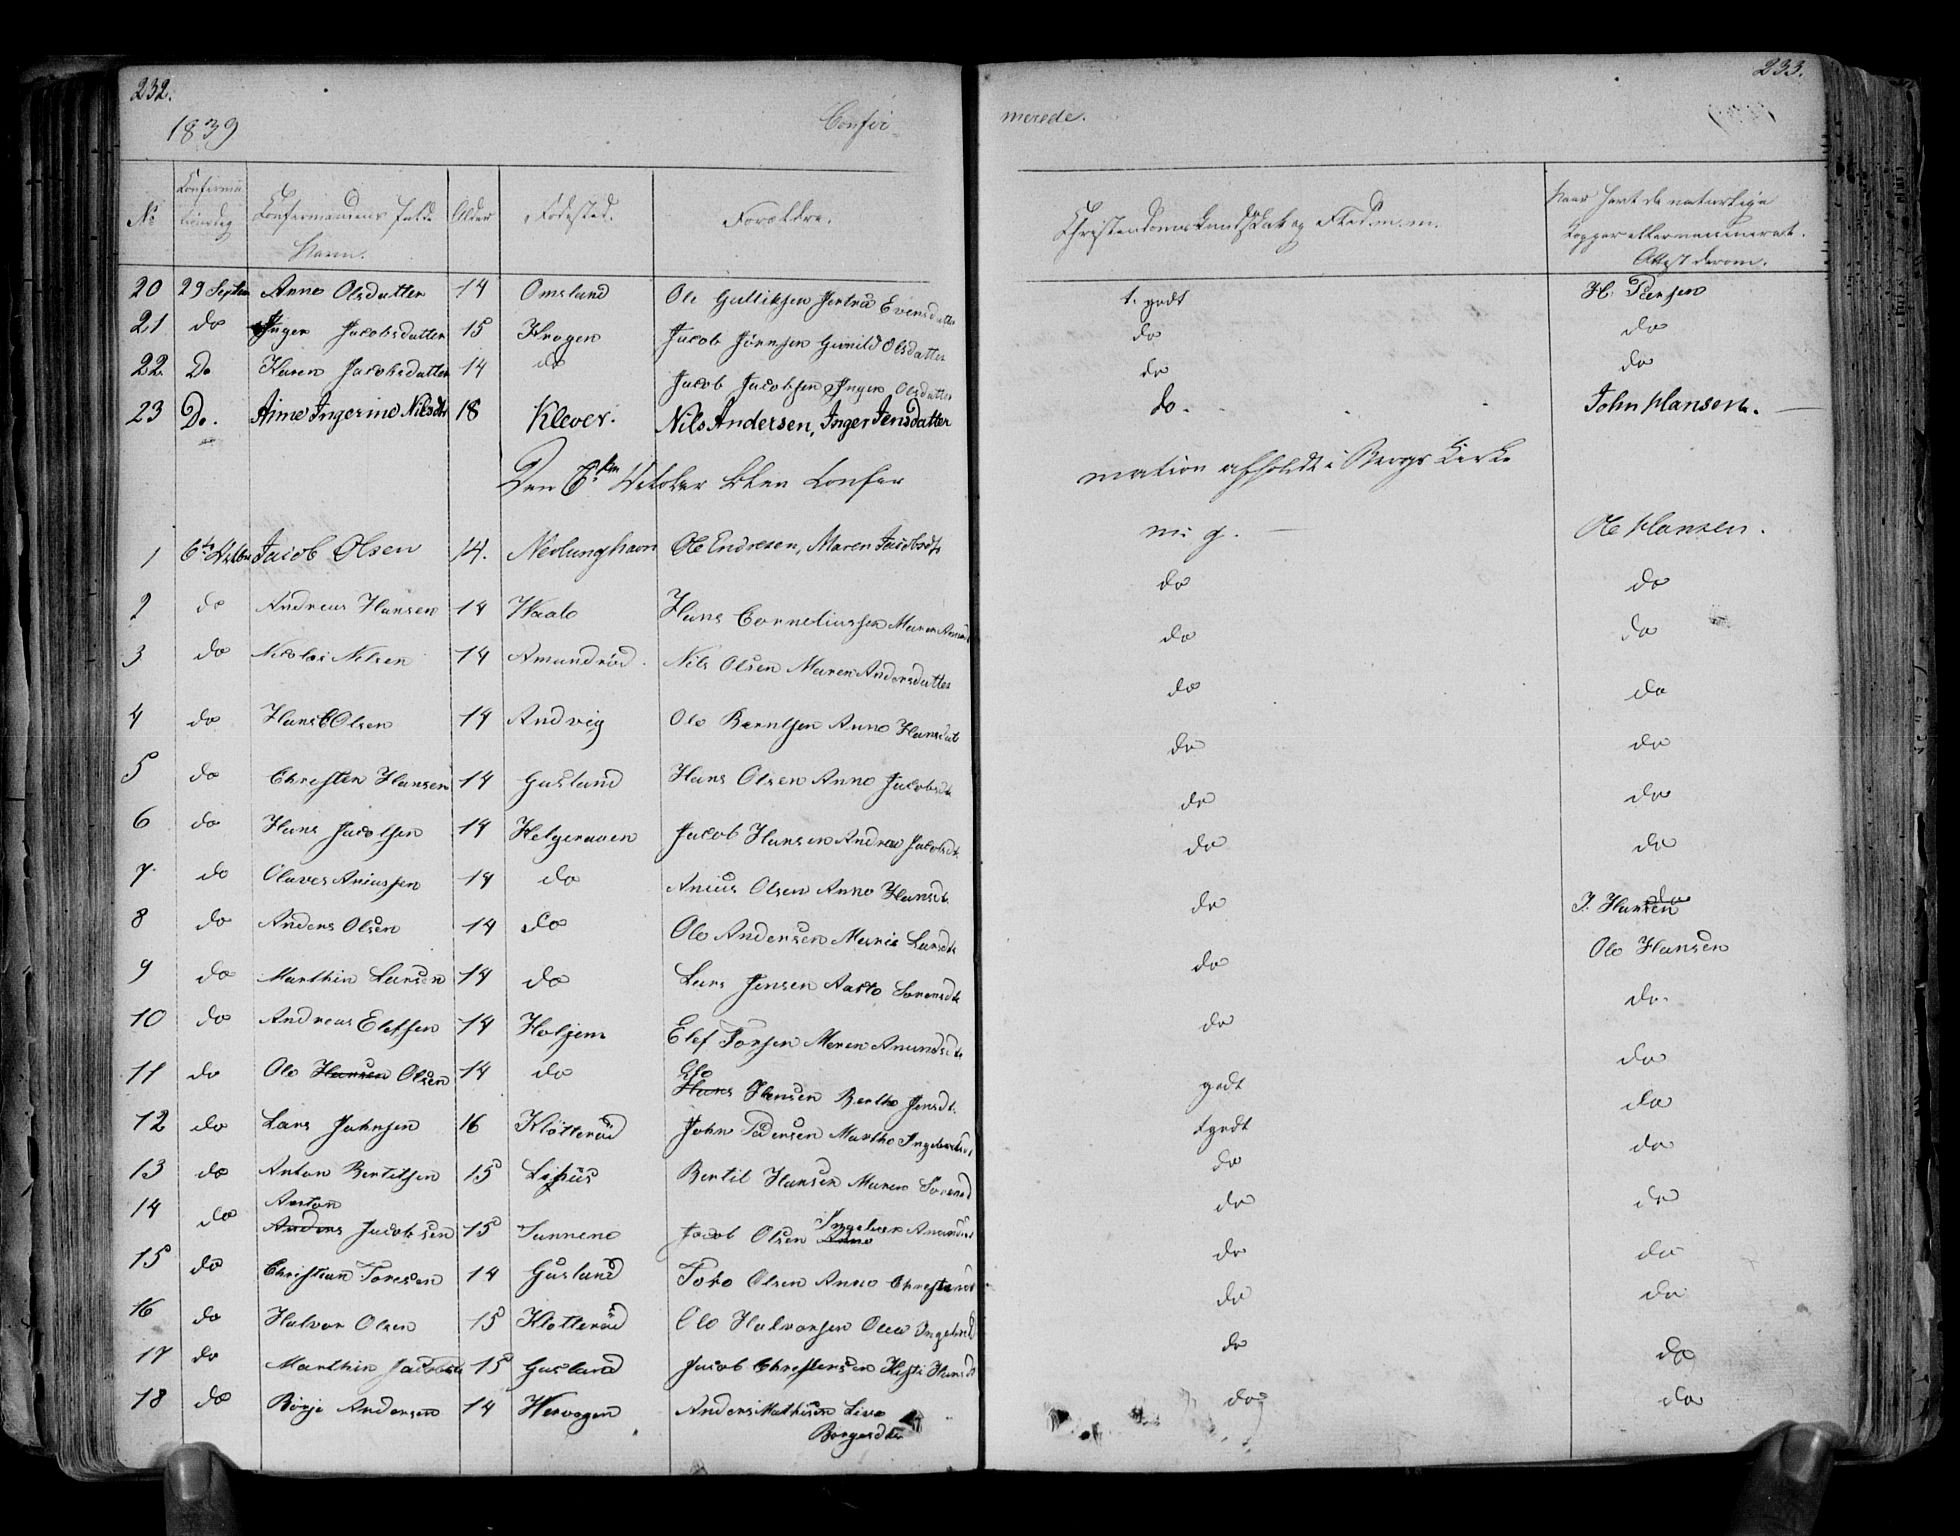 232.
233.
1839
Confir-
merede.
No
Confirma-
tionsdag
Confirmandens fulde
Navn.
Alder
Fødested.
Forældre.
Christendomskundskab og Flid m. m.
Naar havt de naturlige
Kopper eller vaccineret.
Attest derom.
20 29 Septbr Anne Olsdatter 14 Omsland Ole Gulliksen Evensdatter t. godt H. Persen
21 do Inger Jacobsdatter 15 Krogen Jacob Jörnsen Gunild Olsdatter do do
22. Do Karen Jacobsdatter 14 do Jacob Jacobsen Inger Olsdatter do do
23 Do. Anne Ingerine Nilsdtr 18 Klever. Nils Andersen, Inger Jensdatter do. John Hansen.
Den 6te October blev Confir
mation afholdt i Bergs Kirke
1 6te Octbr Jacob Olsen 14. Nevlunghavn Ole Endresen, Maren Jacobsdt m: g. Ole Hansen.
2 do Andreas Hansen 14 Waale Hans Corneliussen Maren do do
3 do Nicolai Nilsen 14 Amundröd. Nils Olsen Maren Andersdatter do do
4 do Hans Olsen 14 Andvig Ole Berntsen Anne Hansdat do do
5 do Christen Hansen 14 Gusland Hans Olsen Anne Jacobsdt do do
6 do Hans Jacobsen 14 Helgeraaen Jacob Hansen Andrea Jacobsdt do do
7. do Olaves Aniussen 14 do Anius Olsen Anne Hansdt do do
8 do Anders Olsen 14 do Ole Andersen Maria Larsdt do J. Hansen do
9 do Marthin Larsen 14 do Lars Jensen Sorensdt do Ole Hansen
10 do Andreas Elefsen 14 Holjem Elef Torsen Maren Anundsdt do do.
11 do Ole Hansen Olsen 14 do Ole Hans Hansen Berthe Jensdt. godt do
12 do Lars Johnsen 16 Klötteröd John Pedersen Marthe Ingebretsd t godt do
13 do Anton Bertilsen 15 Bertil Hansen Maren Sorensd do do
14 do Anton Anders Jacobsen 15 Sunnene Jacob Olsen Ingebor Anne Anundsd do do
15 do Christian Toresen 14 Gusland Tore Olsen Anne Christensd do do
16 do Halvor Olsen 15 Klotteröd Ole Halvorsen Olea Ingebretsd do do
17 do Marthin Jacobse 15 Gusland Jacob Christensen Hansd do do
18 do Börje Andersen 14 Hervogen Anders Mathisen Live
Borgesdtr do do